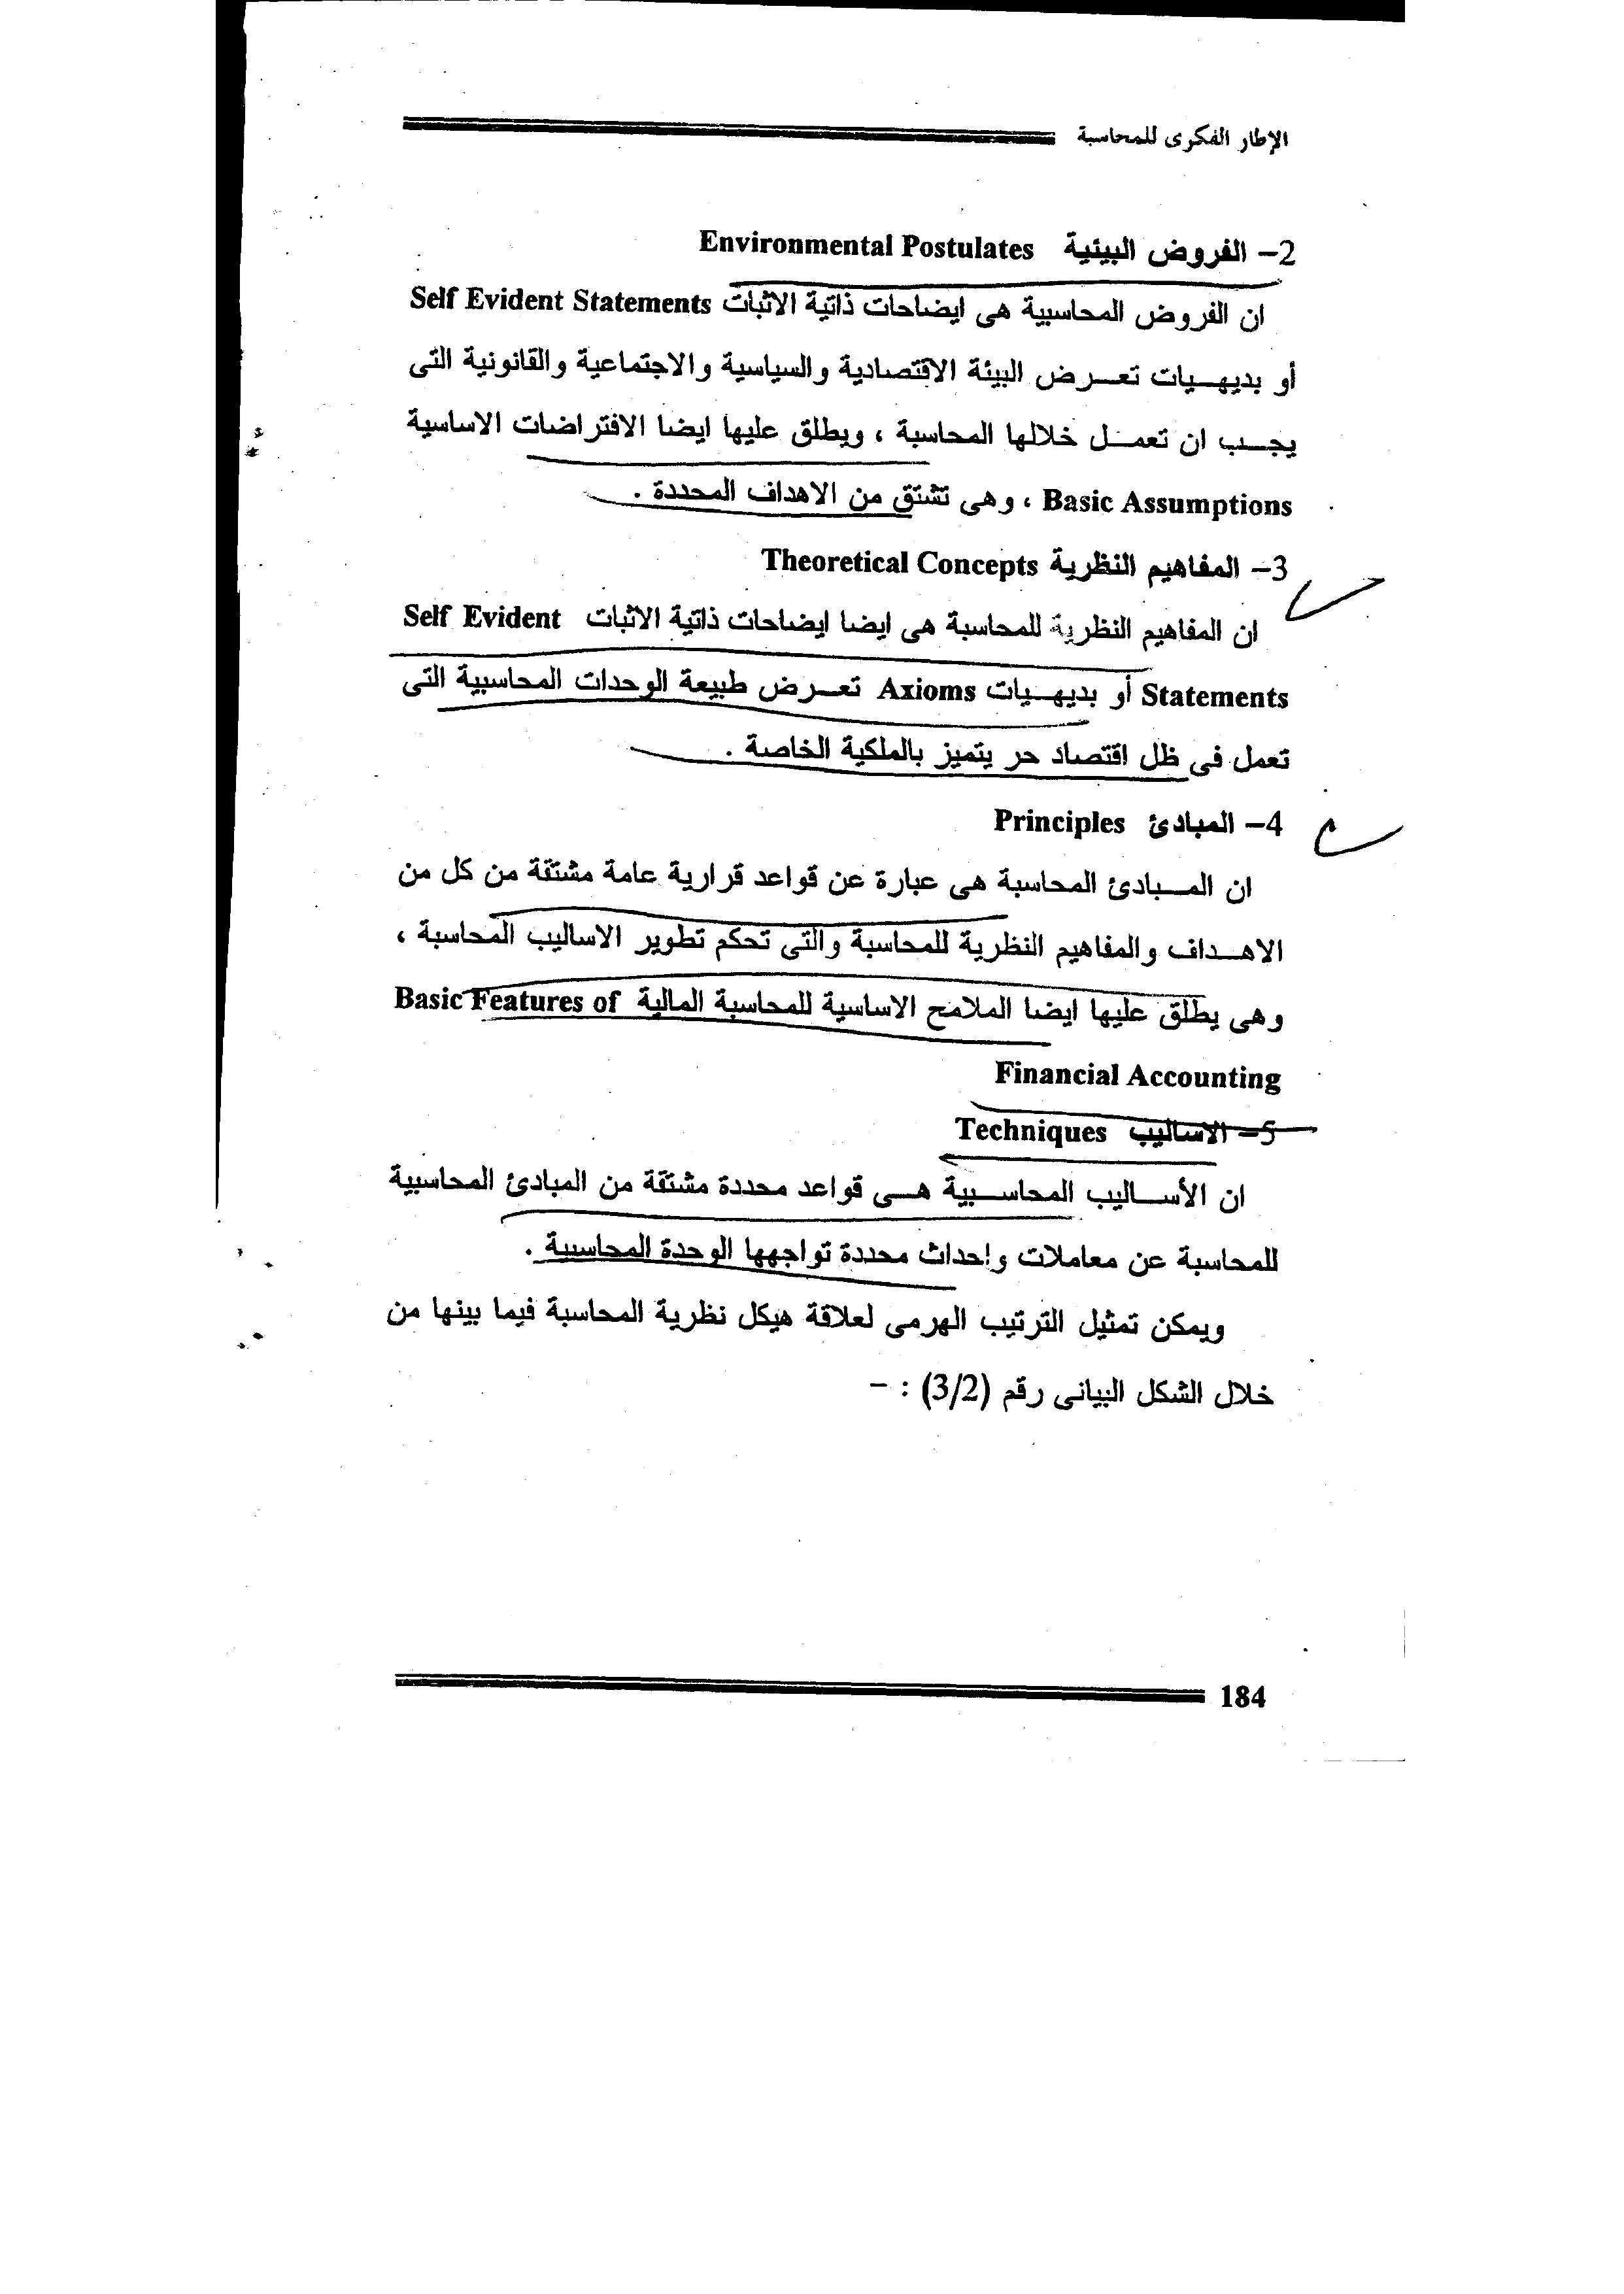 الإطار الفكرى للمحاسبة
2- الفروض البيئية Environmental Postulates
ان الفروض المحاسبية هى ايضاحات ذاتية الاثبات Self Evident Statements
أو بديهيات تعرض البيئة الاقتصادية والسياسية والاجتماعية والقانونية التى
يجب ان تعمل خلالها المحاسبة ، ويطلق عليها ايضا الافتراضات الاساسية
Basic Assumptions ، وهى تشتق من الاهداف المحددة .
3- المفاهيم النظرية Theoretical Concepts
ان المفاهيم النظرية للمحاسبة هى ايضا ايضاحات ذاتية الاثبات Self Evident
Statements أو بديهيات Axioms تعرض طبيعة الوحدات المحاسبية التى
تعمل فى ظل اقتصاد حر يتميز بالملكية الخاصة .
4- المبادئ Principles
ان المبادئ المحاسبة هى عبارة عن قواعد قرارية عامة مشتقة من كل من
الاهداف والمفاهيم النظرية للمحاسبة والتى تحكم تطوير الاساليب المحاسبة ،
وهى يطلق عليها ايضا الملامح الاساسية للمحاسبة المالية Basic Features of
Financial Accounting
5- الاساليب Techniques
ان الأساليب المحاسبية هى قواعد محددة مشتقة من المبادئ المحاسبية
للمحاسبة عن معاملات وإحداث محددة تواجهها الوحدة المحاسبية .
ويمكن تمثيل الترتيب الهرمى لعلاقة هيكل نظرية المحاسبة فيما بينها من
خلال الشكل البيانى رقم (3/2) : -
184